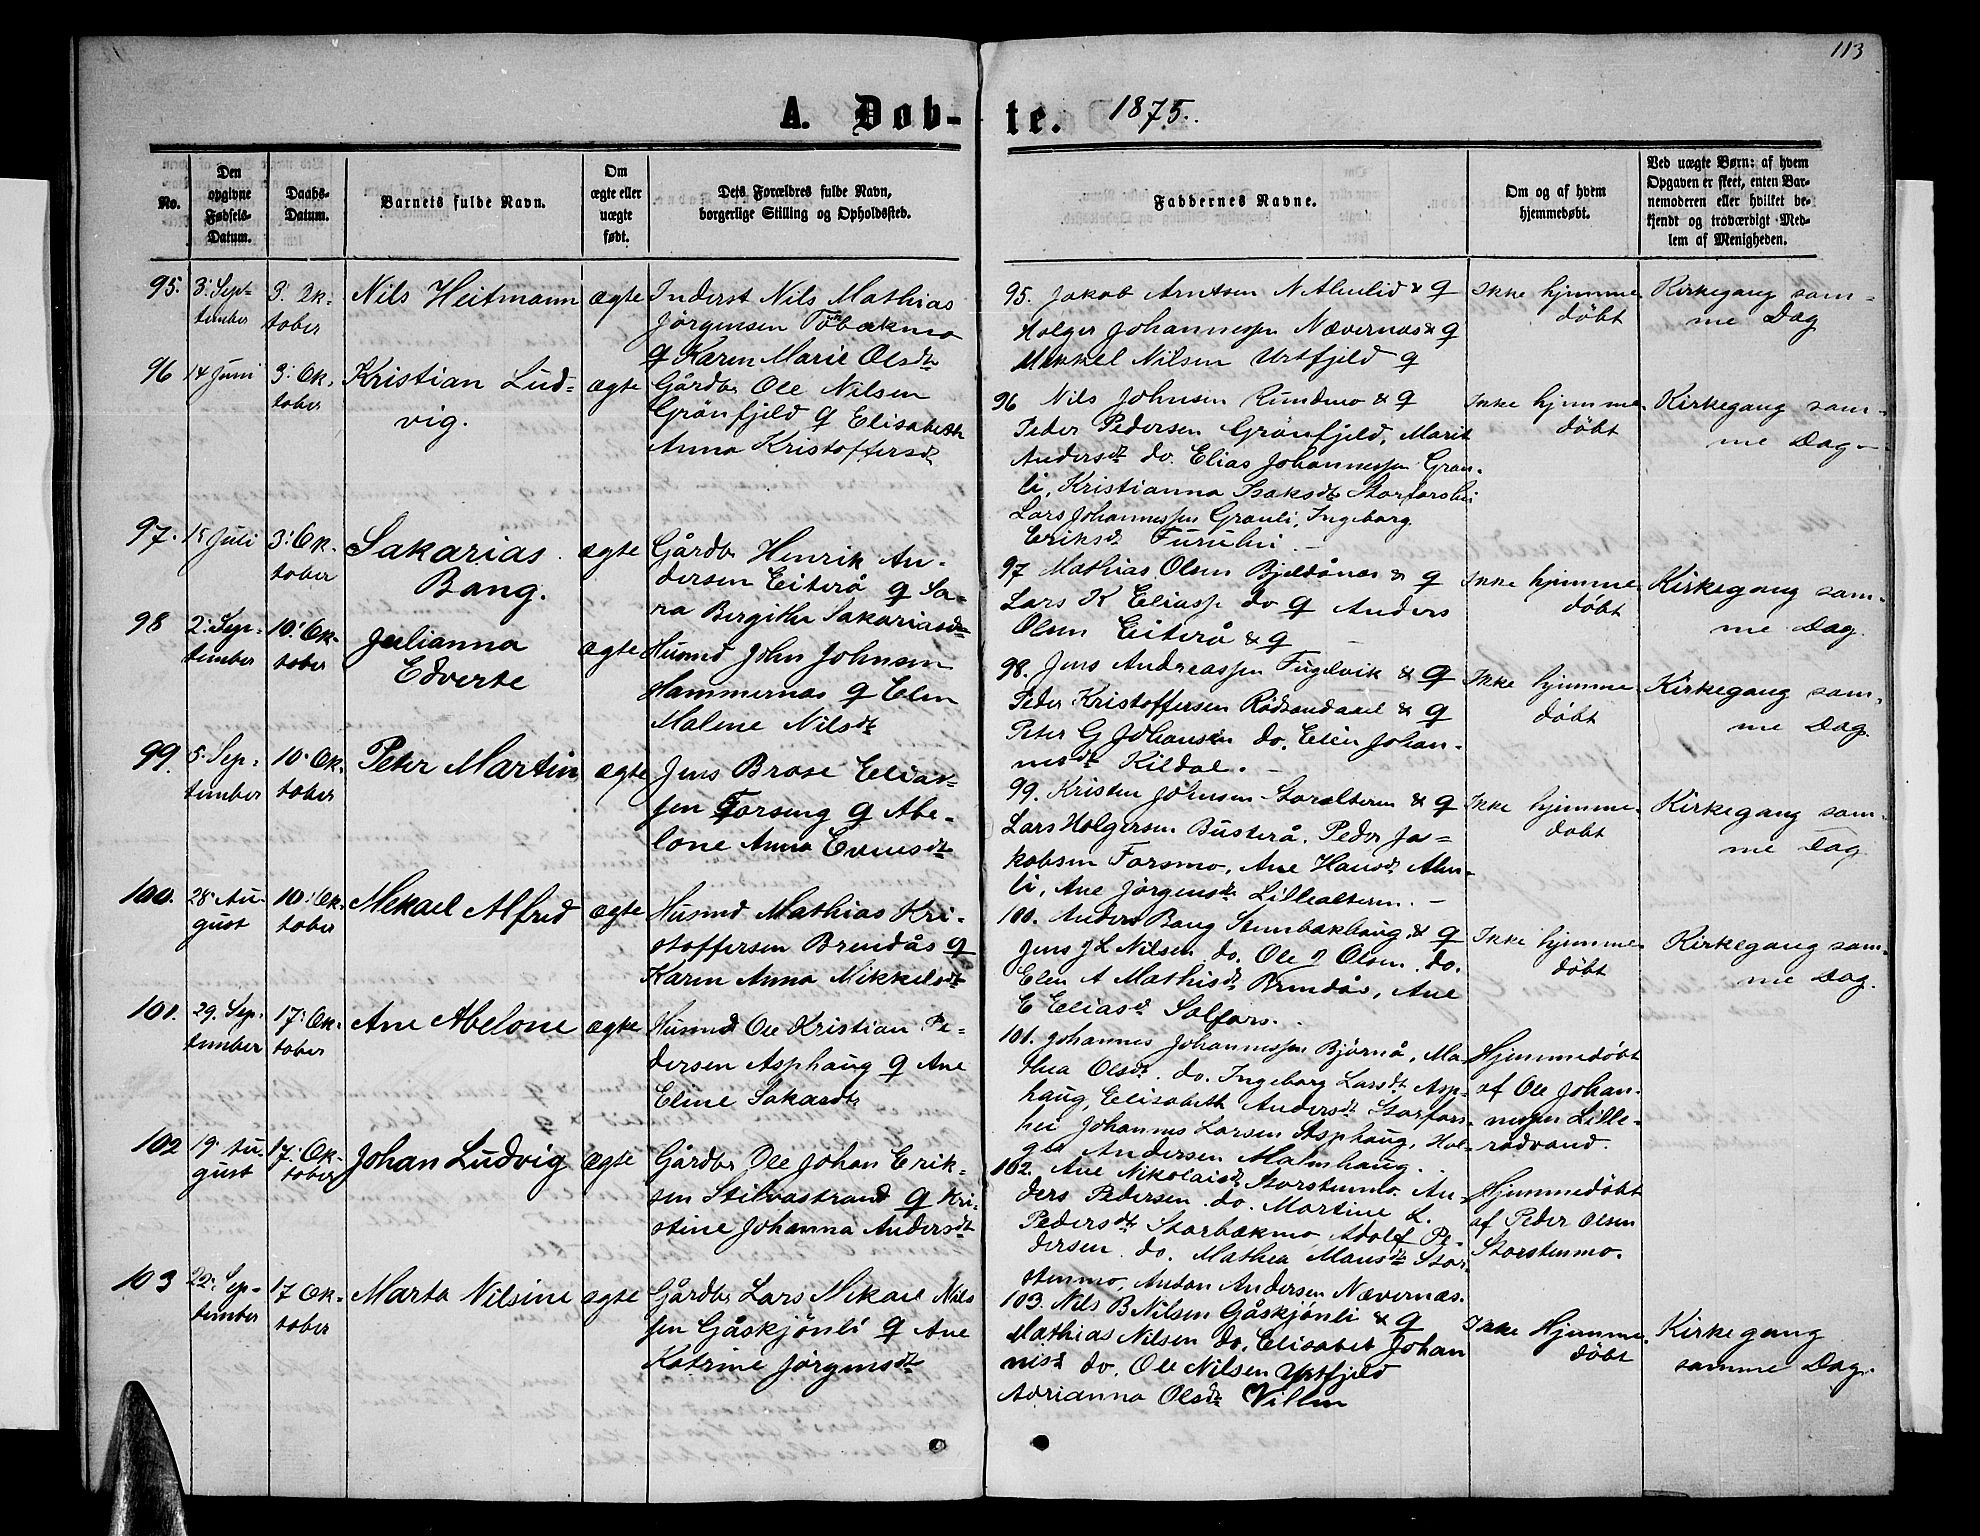 113
A. Døb-
te. 1875.
No.
Den
opgivne
Fødsels-
Datum.
Daabs-
Datum.
Barnets fulde Navn.
Om
ægte eller
uægte
født.
Dets Forældres fulde Navn,
borgerlige Stilling og Opholdssted.
Faddernes Navne.
Om og af hvem
hjemmedøbt.
Ved uægte Børn: af hvem
Opgaven er skeet, enten Bar-
nemoderen eller hvilket be-
kjendt og troværdigt Med-
lem af Menigheden.
95.
3. Sep-
tember
3. Ok-
tober
Nils Heitmann
ægte
Inderst Nils Mathias
Jörgensen Tobakmo
& Karen Marie Olsdtr
95. Jakob Arntsen N. Almlid & q
Holger Johannessen Nævernæs & q
Mikkel Nilsen Urtfjeld q
Ikke hjemme
døbt
Kirkegang sam-
me Dag
96
14 Juni
3. Ok-
tober
Kristian Lud-
vig.
ægte
Gårdbr Ole Nilsen
Grönfjeld q Elisabeth
Anna Kristoffersdt
96 Nils Johnsen Rundmo & q
Peder Pedersen Grönfjeld, Marit
Andersdt do. Elias Johannessen Gran-
li, Kristianna Isaksdtr Storforshei
Lars Johannessen Granli, Ingeborg
Eriksdt Furuhei
Ikke hjemme
døbt
Kirkegang sam-
me Dag
97.
15 Juli
3. Ok-
tober
Sakarias
Bang.
ægte
Gårdbr Henrik An-
dersen Eiterå q Sa-
ra Bergithe Sakariasdtr
97 Mathias Olsen Bjeldånes & q
Lars K Eliass. do q Anders
Olsen Eiterå & q
Ikke hjemme
døbt
Kirkegang sam-
me Dag.
98
2. Sep-
tember
10. Ok-
tober
Julianna
Edverte
ægte
Husmd John Johnsen
Hammernæs q Elen
Malene Nilsdt
98. Jens Andreassen Fuglvik & q
Peder Kristoffersen Rödsandaael & q
Peter G Johansen do, Elen Johan-
nesdt Kildal.
Ikke hjemme
døbt
Kirkegang sam-
me Dag.
99.
5. Sep-
tember
10. Ok-
tober
Peter Martin
ægte
Jens Brose Elias-
sen Forseng q Abe-
lone Anna Evensdt
99. Kristen Johnsen Storalteren & q
Lars Holgersen Busterå. Peder Ja-
kobsen Forsmo, Ane Hansdt Alm-
li, Ane Jörgensdtr Lillealteren.
Ikke hjemme
døbt
Kirkegang sam-
me Dag
100.
28. Au-
gust
10. Ok-
tober
Mekael Alfred
ægte
Husmd Mathias Kri-
stoffersen Brendås q
Karen Anna Mikkelsdt
100. Anders Bang Stenbakhaug & q
Jens J L Nilsen do. Ole J Olsen do.
Elen A Mathisdt Brendås, Ane
E Eliasdt Selfors.
Ikke hjemme
døbt
Kirkegang sam-
me Dag.
101.
29. Sep-
tember
17. Ok-
tober
Ane Abelone
ægte
Husmd Ole Kristian Pe-
dersen Asphaug q Ane
Eline Sakardtr
101. Johannes Johannessen Björnå, Ma-
thea Olsdt. do. Ingeborg Larsdt Asp-
haug, Elisabeth Andersdt Storfors-
hei Johannes Larsen Asphaug, Hol-
ger Andersen Malmhaug.
Hjemmedøbt
af Ole Johan-
nessen Lille-
rødvand.
102
19. Au-
gust
17. Ok-
tober
Johan Ludvig
ægte
Gårdbr Ole Johan Erik-
sen Stilvastrand q Kri-
stine Johanna Andersdt
102. Ane Nikolaisdt Storstenmo. An-
ders Pedersen do. Martine L.
Pedersdt Storbakmo Adolf Pe-
dersen do. Mathea Mansdtr Stor-
stenmo, Anton Andersen Nævernæs.
Hjemmedøbt
af Peder Olsen
Storstenmo.
103
22. Sep-
tember
17 Ok-
tober
Marta Nilsine
ægte
Gårdbr Lars Mikael Nils
sen Gåskjönli q Ane
Katrine Jörgensdt
103. Nils B Nilsen Gåskjönli & q
Mathias Nilsen do, Elisabet Johan
nisd do. Ole Nilsen Urtfjeld
Adrianna Olsdt Villen
Ikke Hjemme
døbt
Kirkegang
samme Dag.